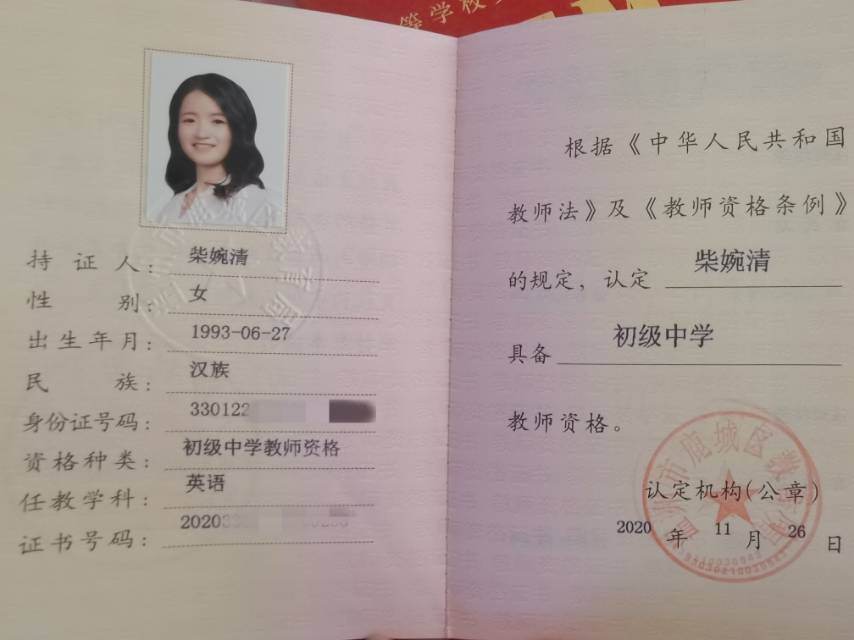 等学校
持证人：柴婉清
性别：女
出生年月：1993-06-27
民族：汉族
身份证号码：330122
资格种类：初级中学教师资格
任教学科：英语
证书号码：2020
根据《中华人民共和国
教师法》及《教师资格条例》
的规定，认定 柴婉清
具备 初级中学
教师资格。
鹿城区教
认定机构(公章)
2020 年 11 月 26 日